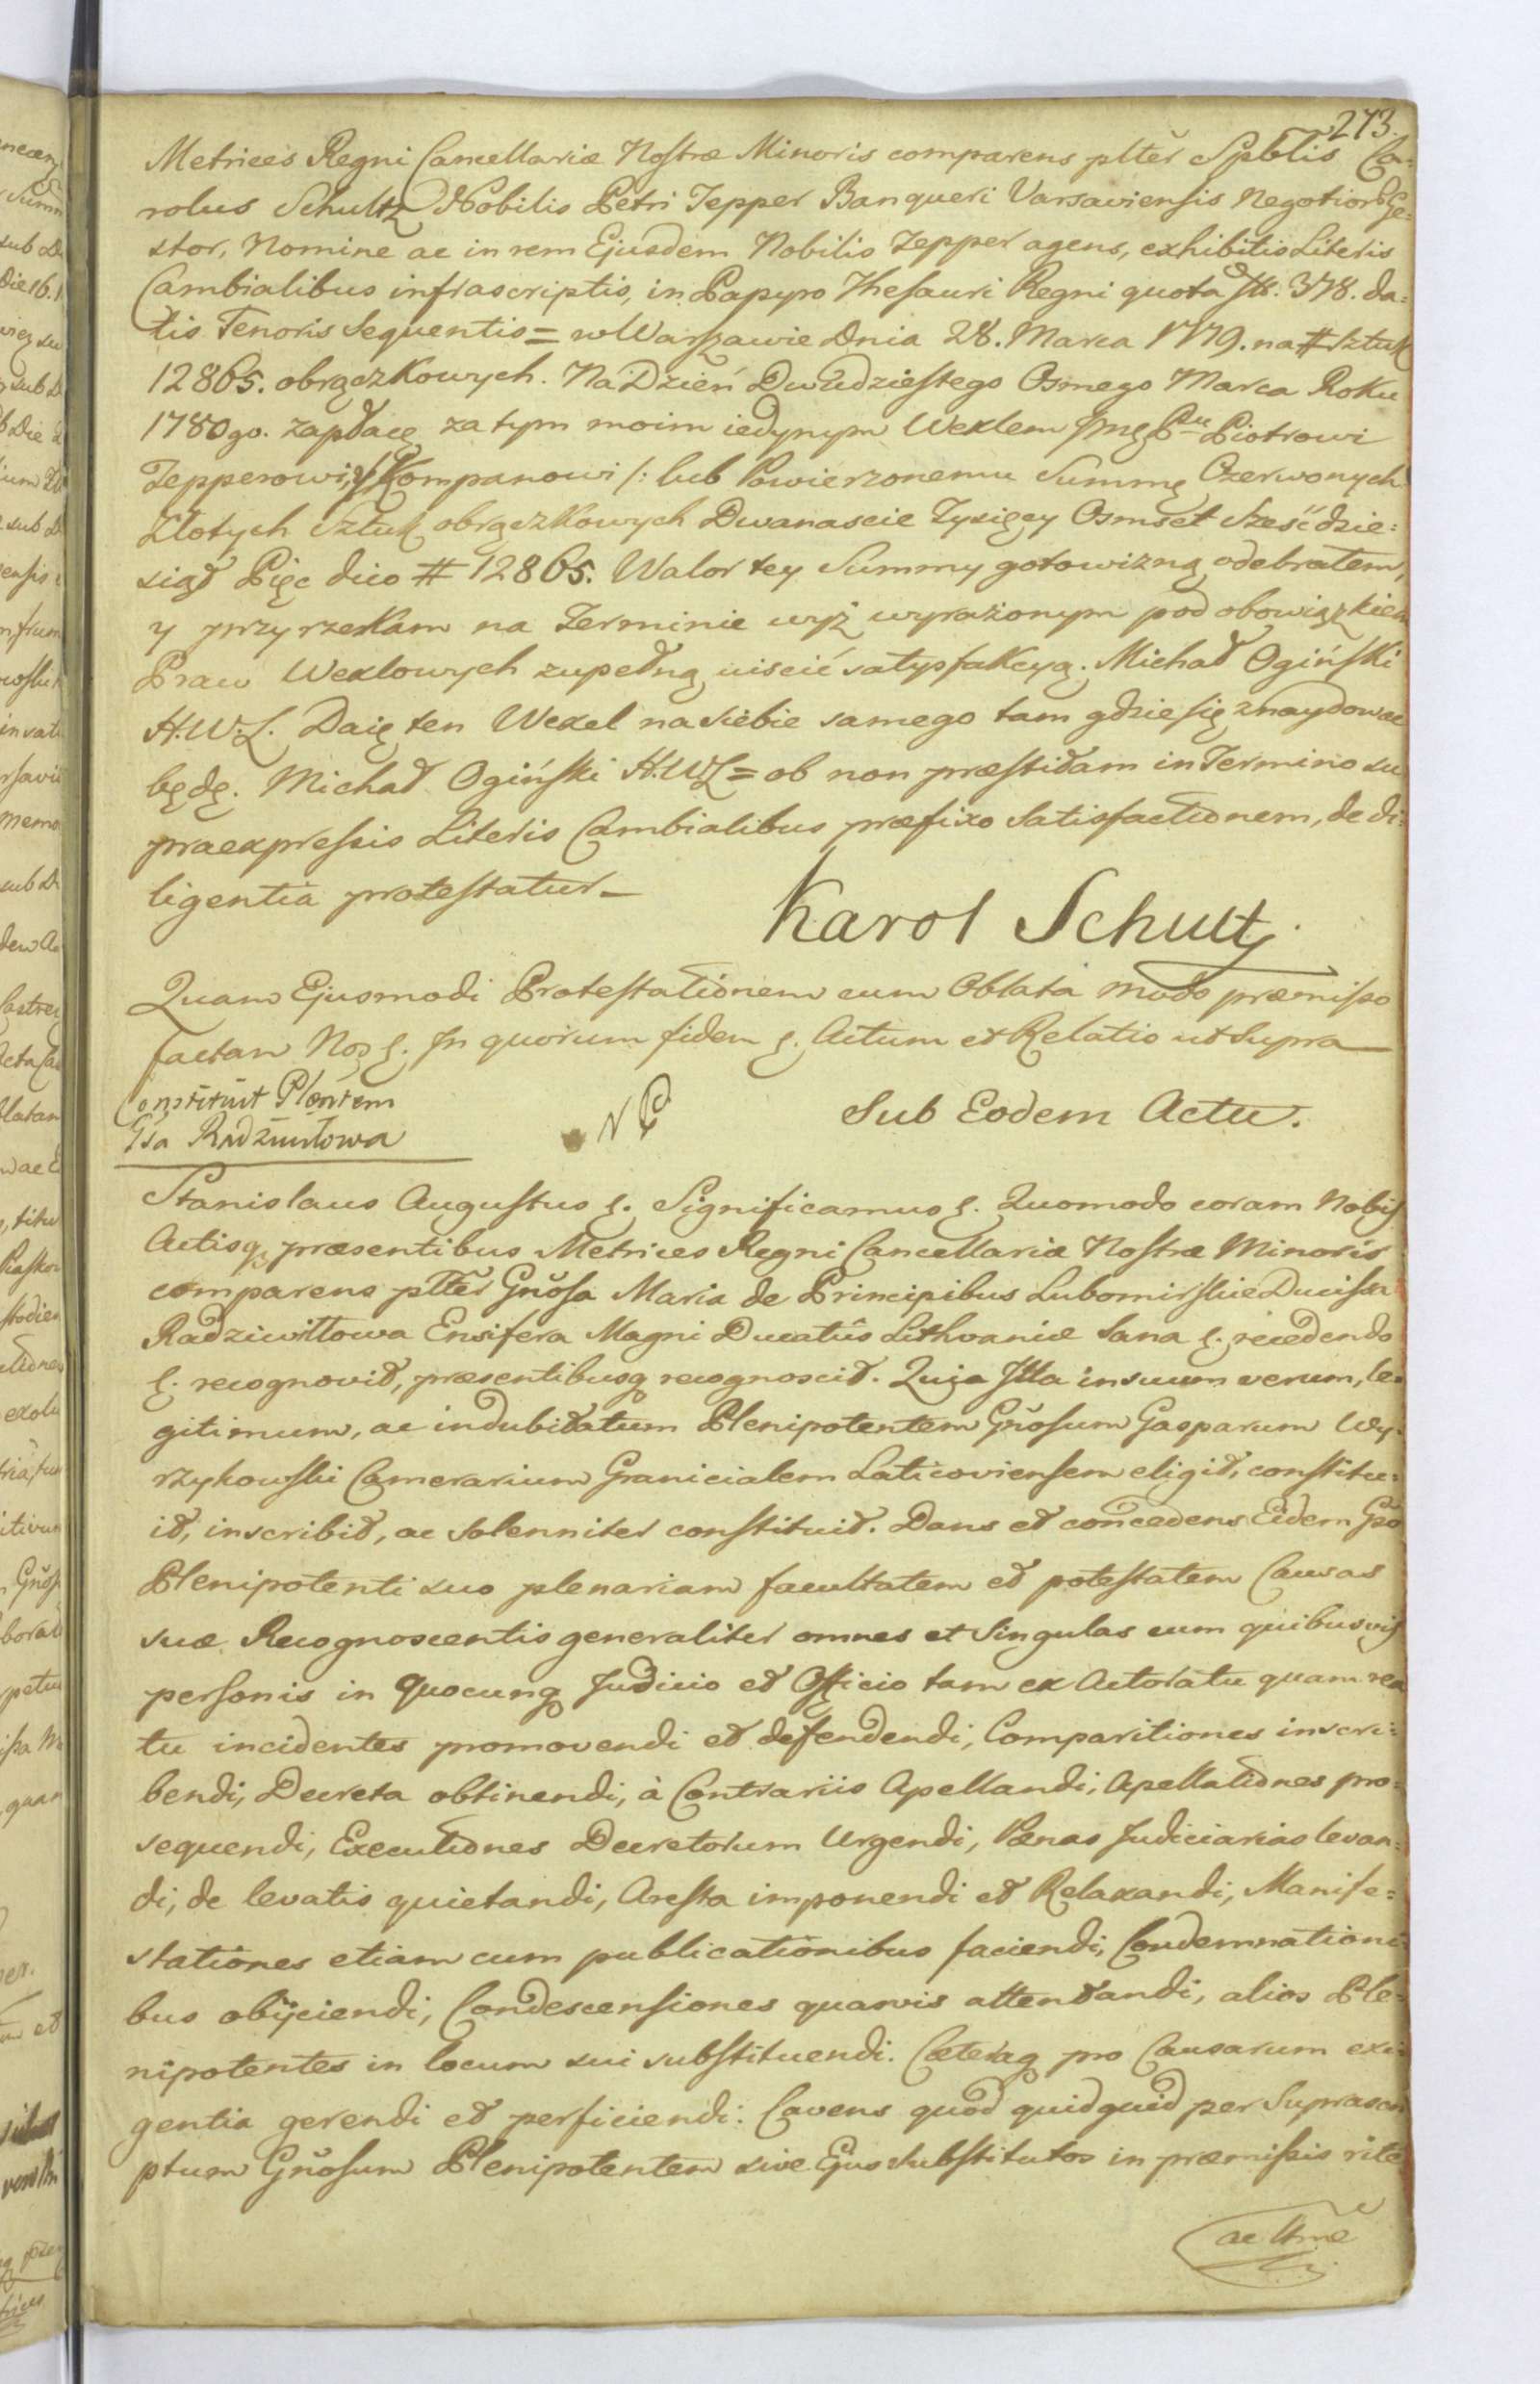 273.
Metrices Regni Cancellariæ Nostræ Minoris comparens plter Spblis Ca=
rolus Schultz Nobilis Petri Tepper Banqueri Varsaviensis Negotior Ge=
stor, Nomine ac in rem Ejusdem Nobilis Tepper agens, exhibitis Literis
Cambialibus infrascriptis, in Papyro Thesauri Regni quota 378. da=
tis Tenoris Sequentis = w Warszawie Dnia 28. Marca 1779. na # Sztuk
12865. obrączkowych. Na Dzień Dwudziestego Osmego Marca Roku
1780go. zapłacę za tym moim iedynym Wexlem Jmę Pnu Piotrowi
Tepperowi, y Kompanowi /: lub Powierzonemu Summę Czerwonych
Złotych Sztuk obrączkowych Dwanascie Tysięcy Osmset Sześćdzie=
siąt Pięc dico # 12865. Walor tey Summy gotowizną odebrałem,
y przyrzekam na Terminie wyż wyrażonym pod obowiązkiem
Praw Wexlowych zupełną uiscić satysfakcyą. Michał Ogiński
H.W.L. Daię ten Wexel na siebie samego tam gdzie się znaydować
będę. Michał Ogiński H.W.L = ob non præstitam in Termino su
praexpressis Literis Cambialibus præfixo Satisfactionem, de di=
ligentia protestatur _
Karol Schultz
Quam Ejusmodi Protestationem cum Oblata modo præmisso
factam Nos &. In quorum fidem &. Actum et Relatio ut Supra
Constituit Plentem
Gsa Radziwiłowa
Sub Eodem Actu.
Stanislaus Augustus &. Significamus &. Quomodo coram Nobis
Actisq præsentibus Metrices Regni Cancellariæ Nostræ Minoris
comparens plter Gnosa Maria de Principibus Lubomirskie Ducissa
Radziwiłłowa Ensifera Magni Ducatûs Lithvaniæ Sana &. recedendo
&. recognovit, præsentibusq recognoscit. Quia Illa in suum verum, le=
gitimum, ac indubitatum Plenipotentem Gnosum Gasparum Wy=
rzykowski Camerarium Granicialem Laticoviensem eligit, constitu=
it, inscribit, ac solenniter constituit. Dans et concedens Eidem Gso
Plenipotenti suo plenariam facultatem et potestatem Causas
suæ Recognoscentis generaliter omnes et Singulas cum quibusvis
personis in quocunq Judicio et Officio tam ex Actoratu quam rea
tu incidentes promovendi et defendendi, Comparitiones inscri=
bendi, Decreta obtinendi, à Contrariis Apellandi, Apellationes pro=
sequendi, Executiones Decretorum Urgendi, Pænas Judiciarias levan=
di, de levatis quietandi, Aresta imponendi et Relaxandi, Manife=
stationes etiam cum publicationibus faciendi, Condemnationi=
bus obijciendi, Condescensiones quasvis attentandi, alios Ple=
nipotentes in locum sui substituendi. Cæteraq pro Causarum exi=
gentia gerendi et perficiendi: Cavens quod quidquid per Suprascri
ptum Gnosum Plenipotentem sive Ejus substitutos in præmissis ritè
ac ltme